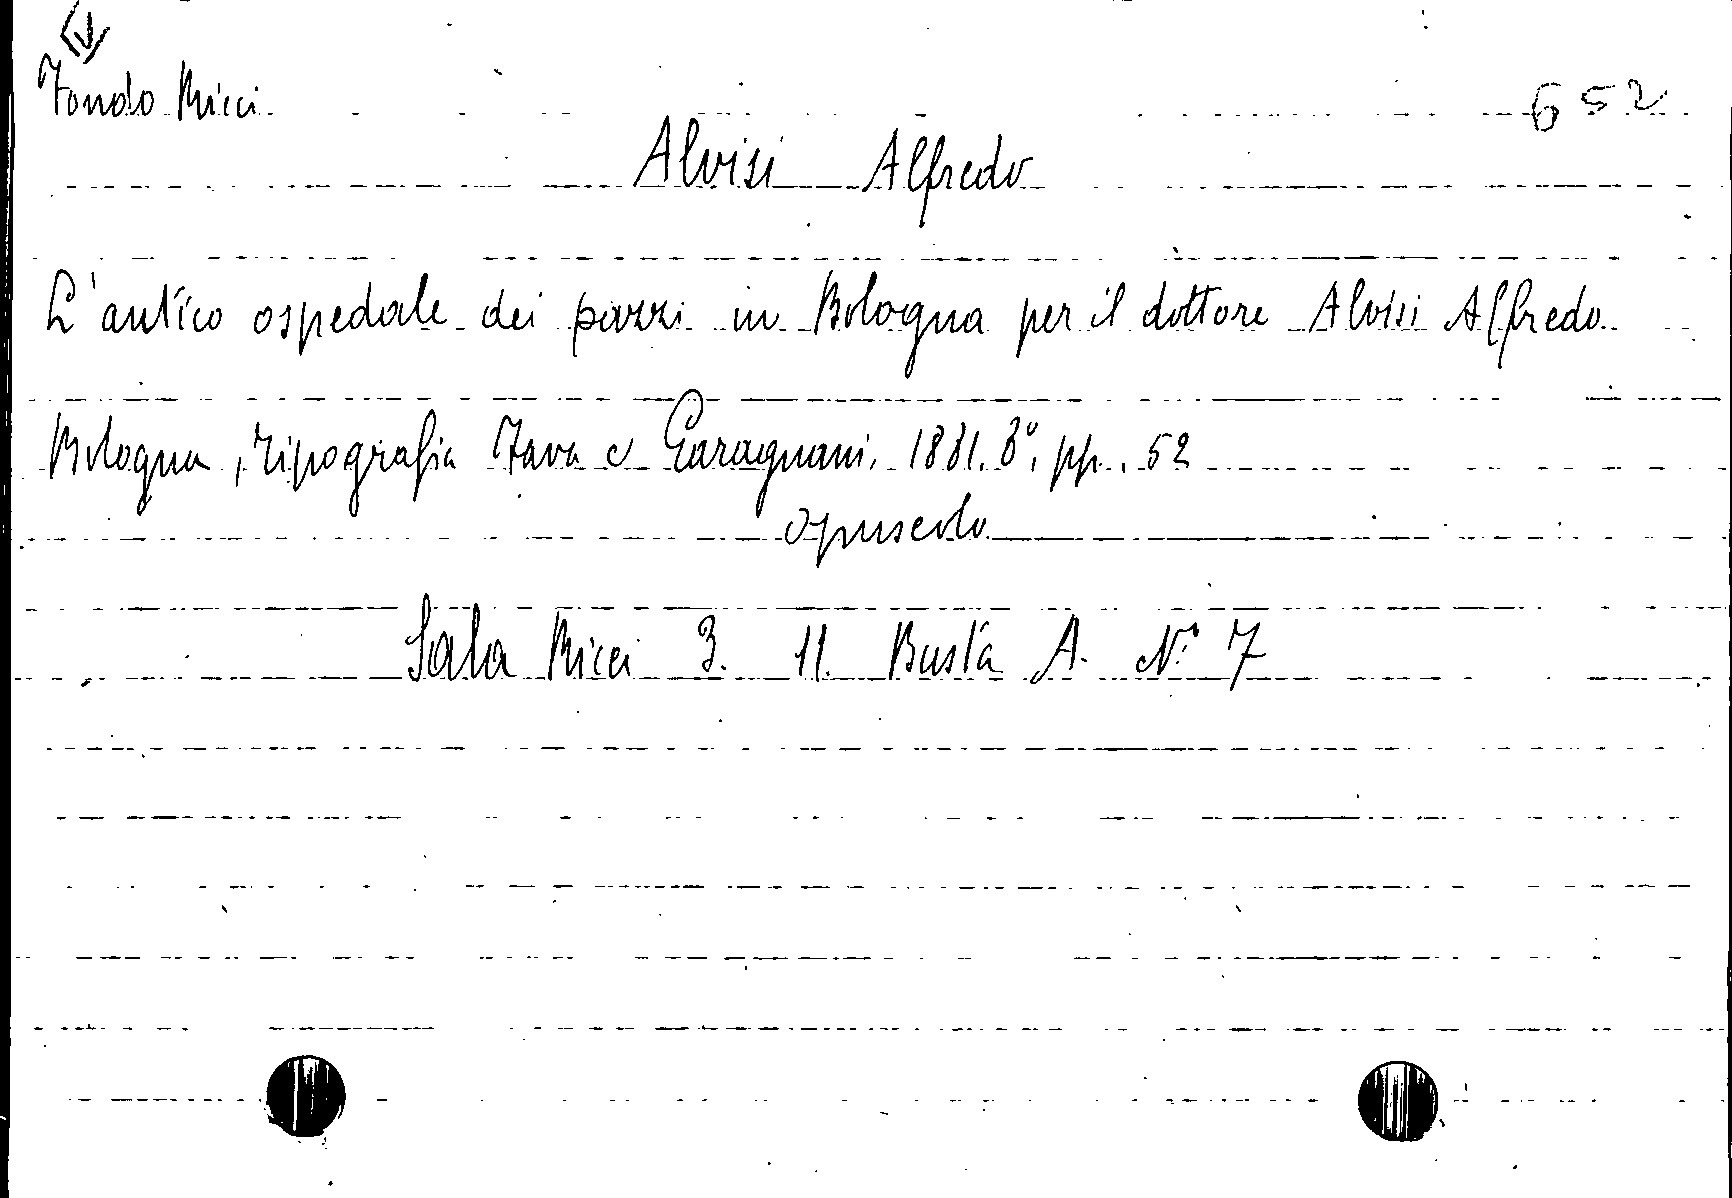 Fondo Ricci 652
Alvisi Alfredo
L'antico ospedale dei pazzi in Bologna per il dottore Alvisi Alfredo
Bologna, Tipografia Fava e Garagnani, 1881. 8°, pp. 52
opuscolo
Sala Ricci 3. 11. Busta A. N.° 7